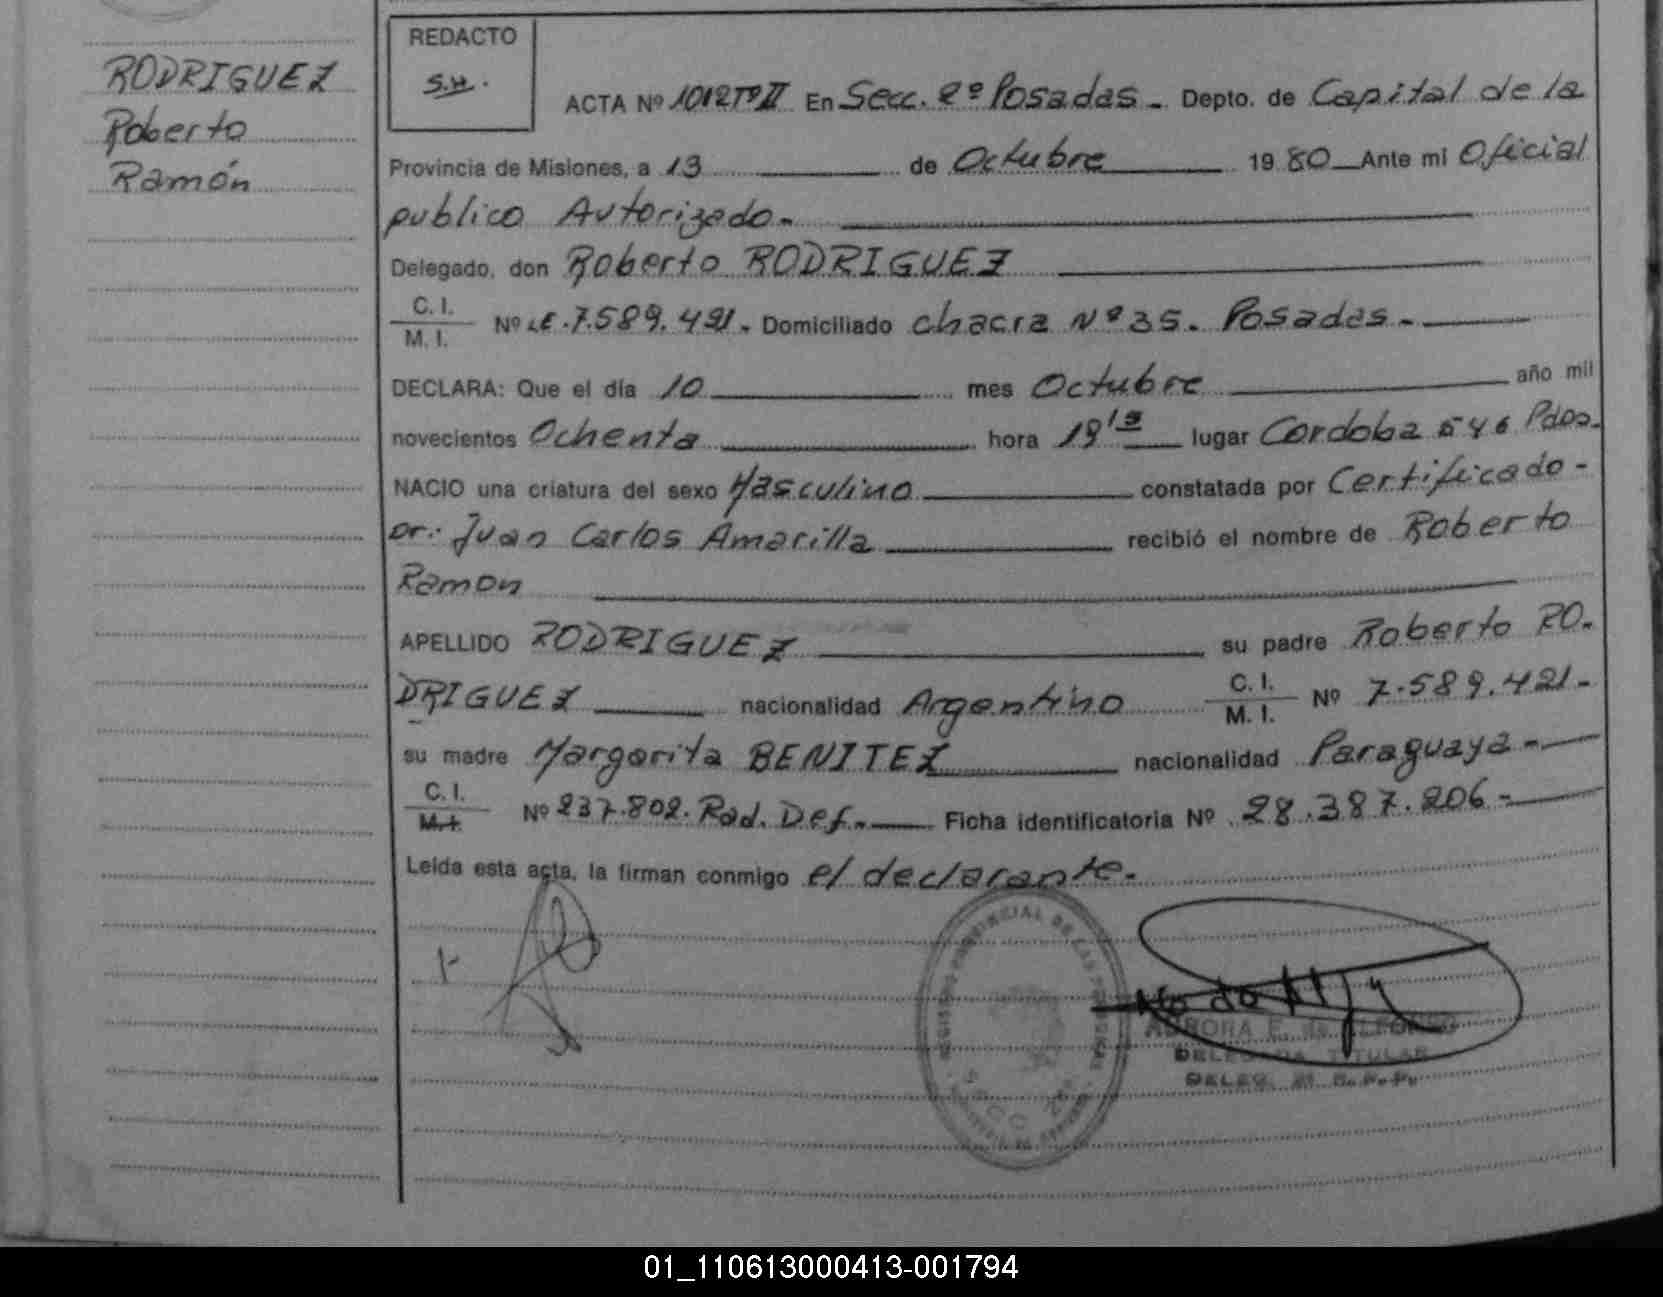 RODRIGUEZ
Roberto
Ramón
REDACTO
S.H.
ACTA Nº 1012 Tº II En Secc. 2º Posadas - Depto. de Capital de la
Provincia de Misiones, a 13 de Octubre 19 80 Ante mi Oficial
publico Autorizado.
Delegado, don Roberto RODRIGUEZ
C. I.
M. I. Nº LE. 7.589.421. Domiciliado chacra Nº 35. Posadas.
DECLARA: Que el día 10 mes Octubre año mil
novecientos Ochenta hora 19 15 lugar Cordoba 646 Pdas.
NACIO una criatura del sexo Masculino constatada por Certificado -
Dr: Juan Carlos Amarilla recibió el nombre de Roberto
Ramon
APELLIDO RODRIGUEZ su padre Roberto RO.
DRIGUEZ nacionalidad Argentino C. I.
M. I. Nº 7.589.421-
su madre Margarita BENITEZ nacionalidad Paraguaya -
C. I.
M. I. Nº 237.802. Rad. Def. Ficha identificatoria Nº 28.387.206-
Leída esta acta, la firman conmigo el declarante.
AURORA E. de ALFONSO
DELEGADA TITULAR
01_110613000413-001794